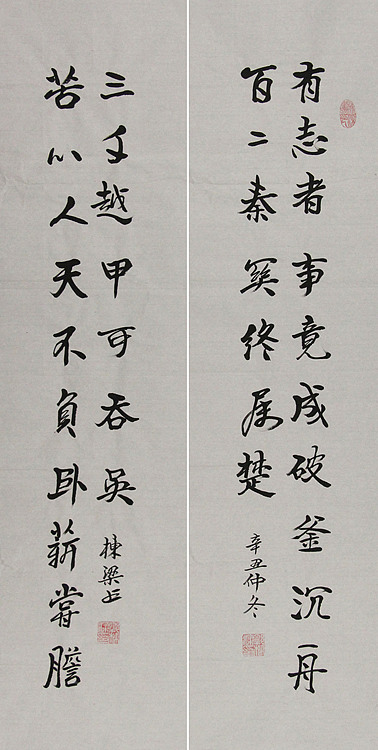 有志者事竟成破釜沉舟
百二秦関终属楚
辛丑仲冬
苦心人天不負卧薪嘗膽
三千越甲可吞吳
棟梁书